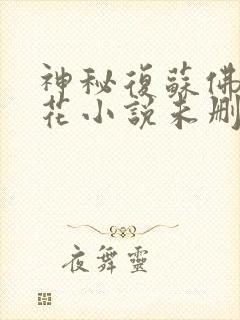 神秘復蘇佛
花小說未刪
夜舞靈